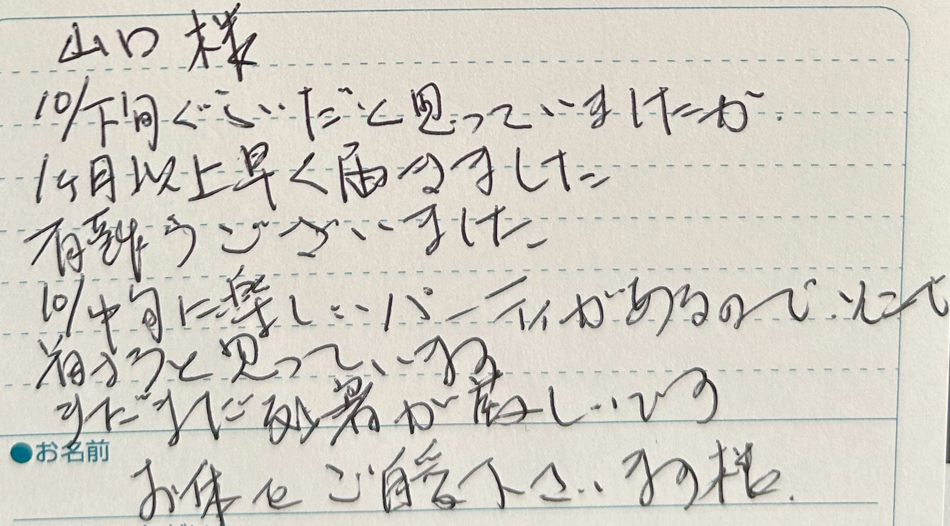 山口 様
10/下旬ぐらいだと思っていましたが、
1ヶ月以上早く届きました
有難うございました
10/中旬に楽しいパーティがあるので、そこで
着ようと思っています
まだまだ残暑が厳しいです
●お名前
お体をご自愛下さいます様.